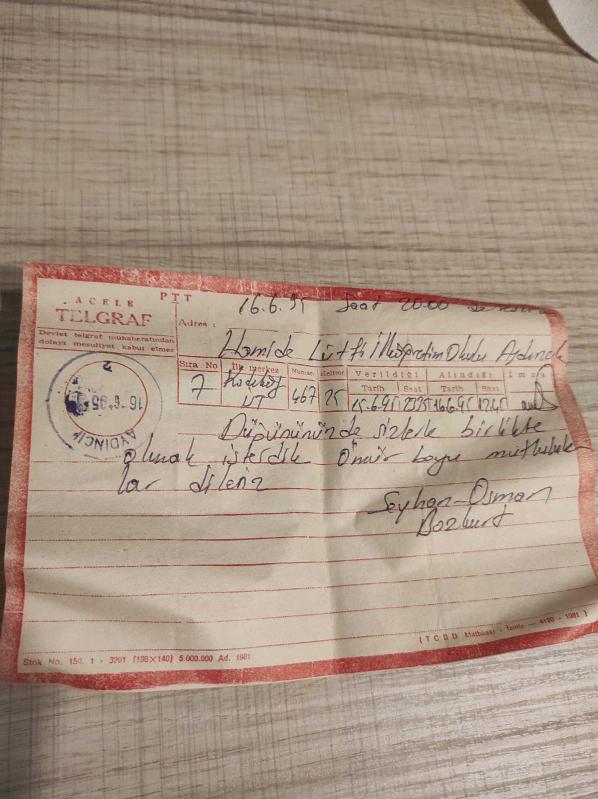 ACELE PTT
TELGRAF
Devlet telgraf muhaberatından
dolayı mesuliyet kabul etmez
16.6.95 Saat 20.00
Adres :
Hamide Lütfi İlköğretim Okulu Aydıncık
Sıra No İlk merkez Numarı Kelime Verildiği Alındığı İmza
Tarih Saat Tarih Saat
7 Kadıköy 467 25 15.6.95 2325 16.6.95 1245
16.6.95
AYDINCIK
2
Düğününüzde sizlerle birlikte
olmak isterdik Ömür boyu mutluluk
lar dileriz
Seyhan-Osman
Bozkurt
Stok No. 154. 1 - 3291 (198×140) 5.000.000 Ad. 1981
(TCDD Matbaası - İzmir - 4190 - 1981)